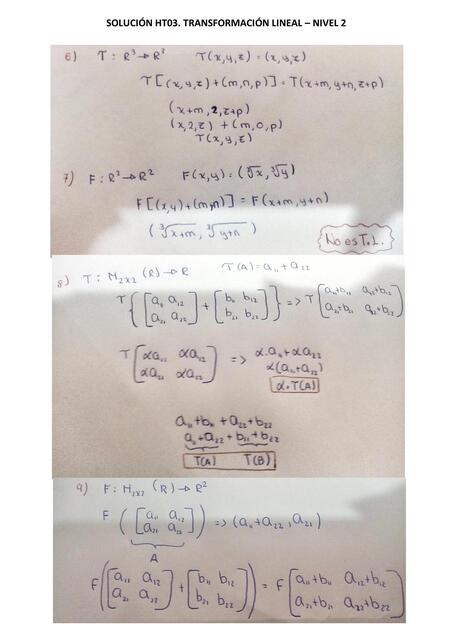 SOLUCIÓN HT03. TRANSFORMACIÓN LINEAL – NIVEL 2
6) T: R³→R³ T(x,y,z)=(x,y,z)
T[(x,y,z)+(m,n,p)]=T(x+m,y+n,z+p)
(x+m,2,z+p)
(x,2,z)+(m,0,p)
T(x,y,z)
7) F: R²→R² F(x,y)=(∛x,∛y)
F[(x,y)+(m,n)]=F(x+m,y+n)
(∛x+m, ∛y+n)
No es T.L.
8) T: M₂ₓ₂(R)→R T(A)=a₁₁+a₂₂
T{[a₁₁ a₁₂
a₂₁ a₂₂]+[b₁₁ b₁₂
b₂₁ b₂₂]}=>T[a₁₁+b₁₁ a₁₂+b₁₂
a₂₁+b₂₁ a₂₂+b₂₂]
T[αa₁₁ αa₁₂
αa₂₁ αa₂₂] => α.a₁₁+αa₂₂
α(a₁₁+a₂₂)
α.T(A)
a₁₁+b₁₁+a₂₂+b₂₂
a₁₁+a₂₂+b₁₁+b₂₂
T(A) T(B)
9) F: M₂ₓ₂(R)→R²
F([a₁₁ a₁₂
a₂₁ a₂₂])=>(a₁₁+a₂₂,a₂₁)
A
F([a₁₁ a₁₂
a₂₁ a₂₂]+[b₁₁ b₁₂
b₂₁ b₂₂])=F[a₁₁+b₁₁ a₁₂+b₁₂
a₂₁+b₂₁ a₂₂+b₂₂]